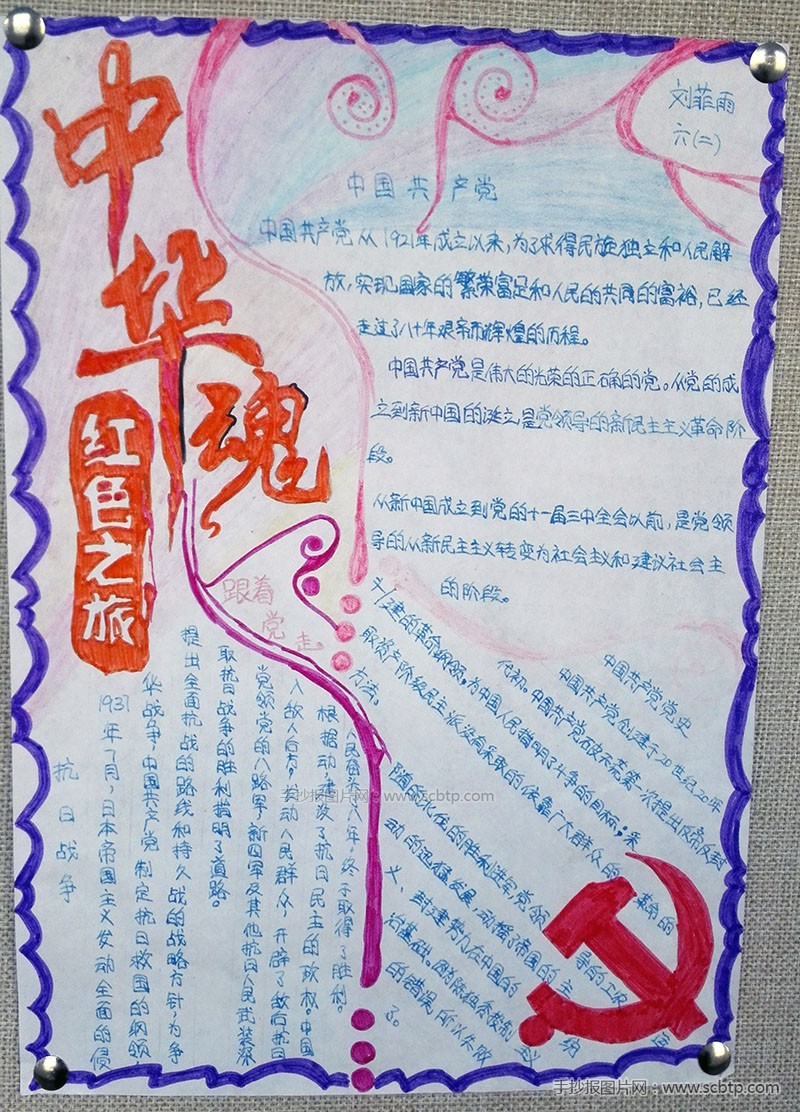 中华魂
红色之旅
刘菲雨
六(二)
中国共产党
中国共产党从1921年成立以来,为了求得民族独立和人民解
放,实现国家的繁荣富足和人民的共同的富裕,已经
走过了八十年艰帝而辉煌的历程。
中国共产党是伟大的光荣的正确的党。从党的成
立到新中国的诞立是党领导的新民主主义革命阶
段。
从新中国成立到党的十一届三中全会以前,是党领
导的从新民主主义转变为社会主义和建议社会主
的阶段。
跟着
党走
中国共产党党史
中国共产党创建于20世纪20年
代初。中国共产党石破天荒第一次提出反帝反封
建的革命纲领,为中国人民指明了斗争的目标;采
取资产阶级民主派没有采取的依靠广大群众的革命的
方法。
随的北伐的胜利进军,党领导的工
动的迅猛发展,动摇了帝国的主
义、封建势力在中国的
治基础。
的错误所以失败
了。
抗日战争
1937年7月,日本帝国主义发动全面的侵
华战争,中国共产党制定抗日救国的纲领,
提出全面抗战的路线和持久战的战略方针,为争
取抗日战争的胜利指明了道路。
党领党的八路军新四军及其他抗日人民武装深
入敌人后方,发动人民群众,开辟了敌后抗日
根据动建发了抗日民主的政权。中国
人民奋八年,终于取得了胜利。
手抄报图片网:www.scbtp.com
手抄报图片网:www.scbtp.com